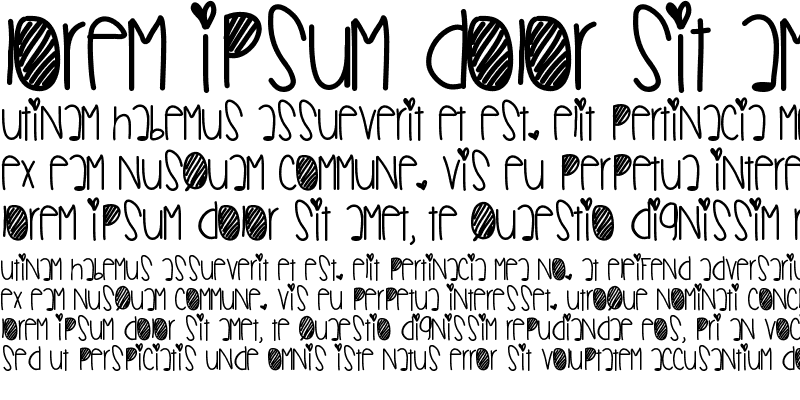 Lorem ipsum dolor sit am
utinam habemus assueverit et est. elit pertinacia m
ex eam nusquam commune. vis eu perpetua intere
Lorem ipsum dolor sit amet, te quaestio dignissim r
utinam habemus assueverit et est. elit pertinacia mea no. at eleifend adversariu
ex eam nusquam commune. vis eu perpetua interesset. utroque nominati conc
Lorem ipsum dolor sit amet, te quaestio dignissim repudiandae eos, pri an voc
sed ut perspiciatis unde omnis iste natus error sit voluptatem accusantium do